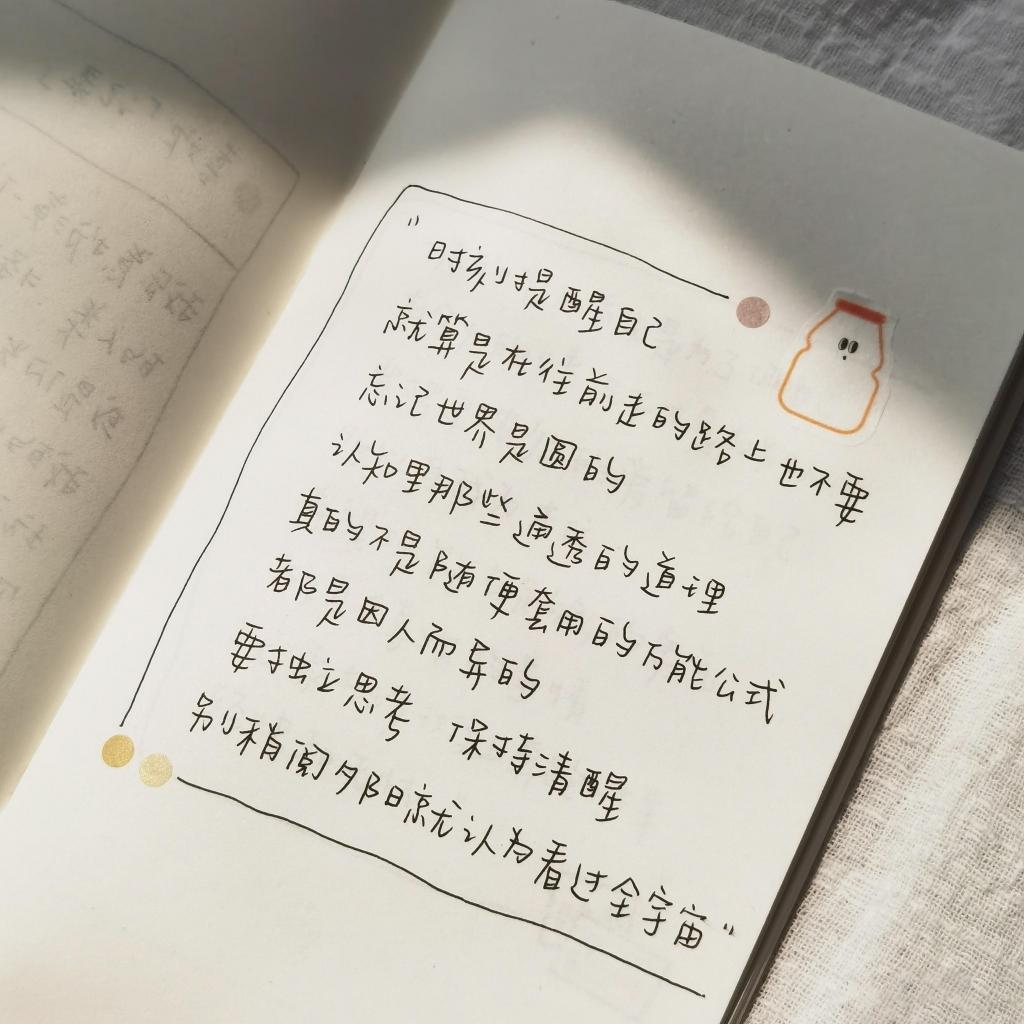 "时刻提醒自己
就算是在往前走的路上也不要
忘记世界是圆的
认知里那些通透的道理
真的不是随便套用的万能公式
都是因人而异的
要独立思考 保持清醒
别稍阅夕阳就认为看过全宇宙"